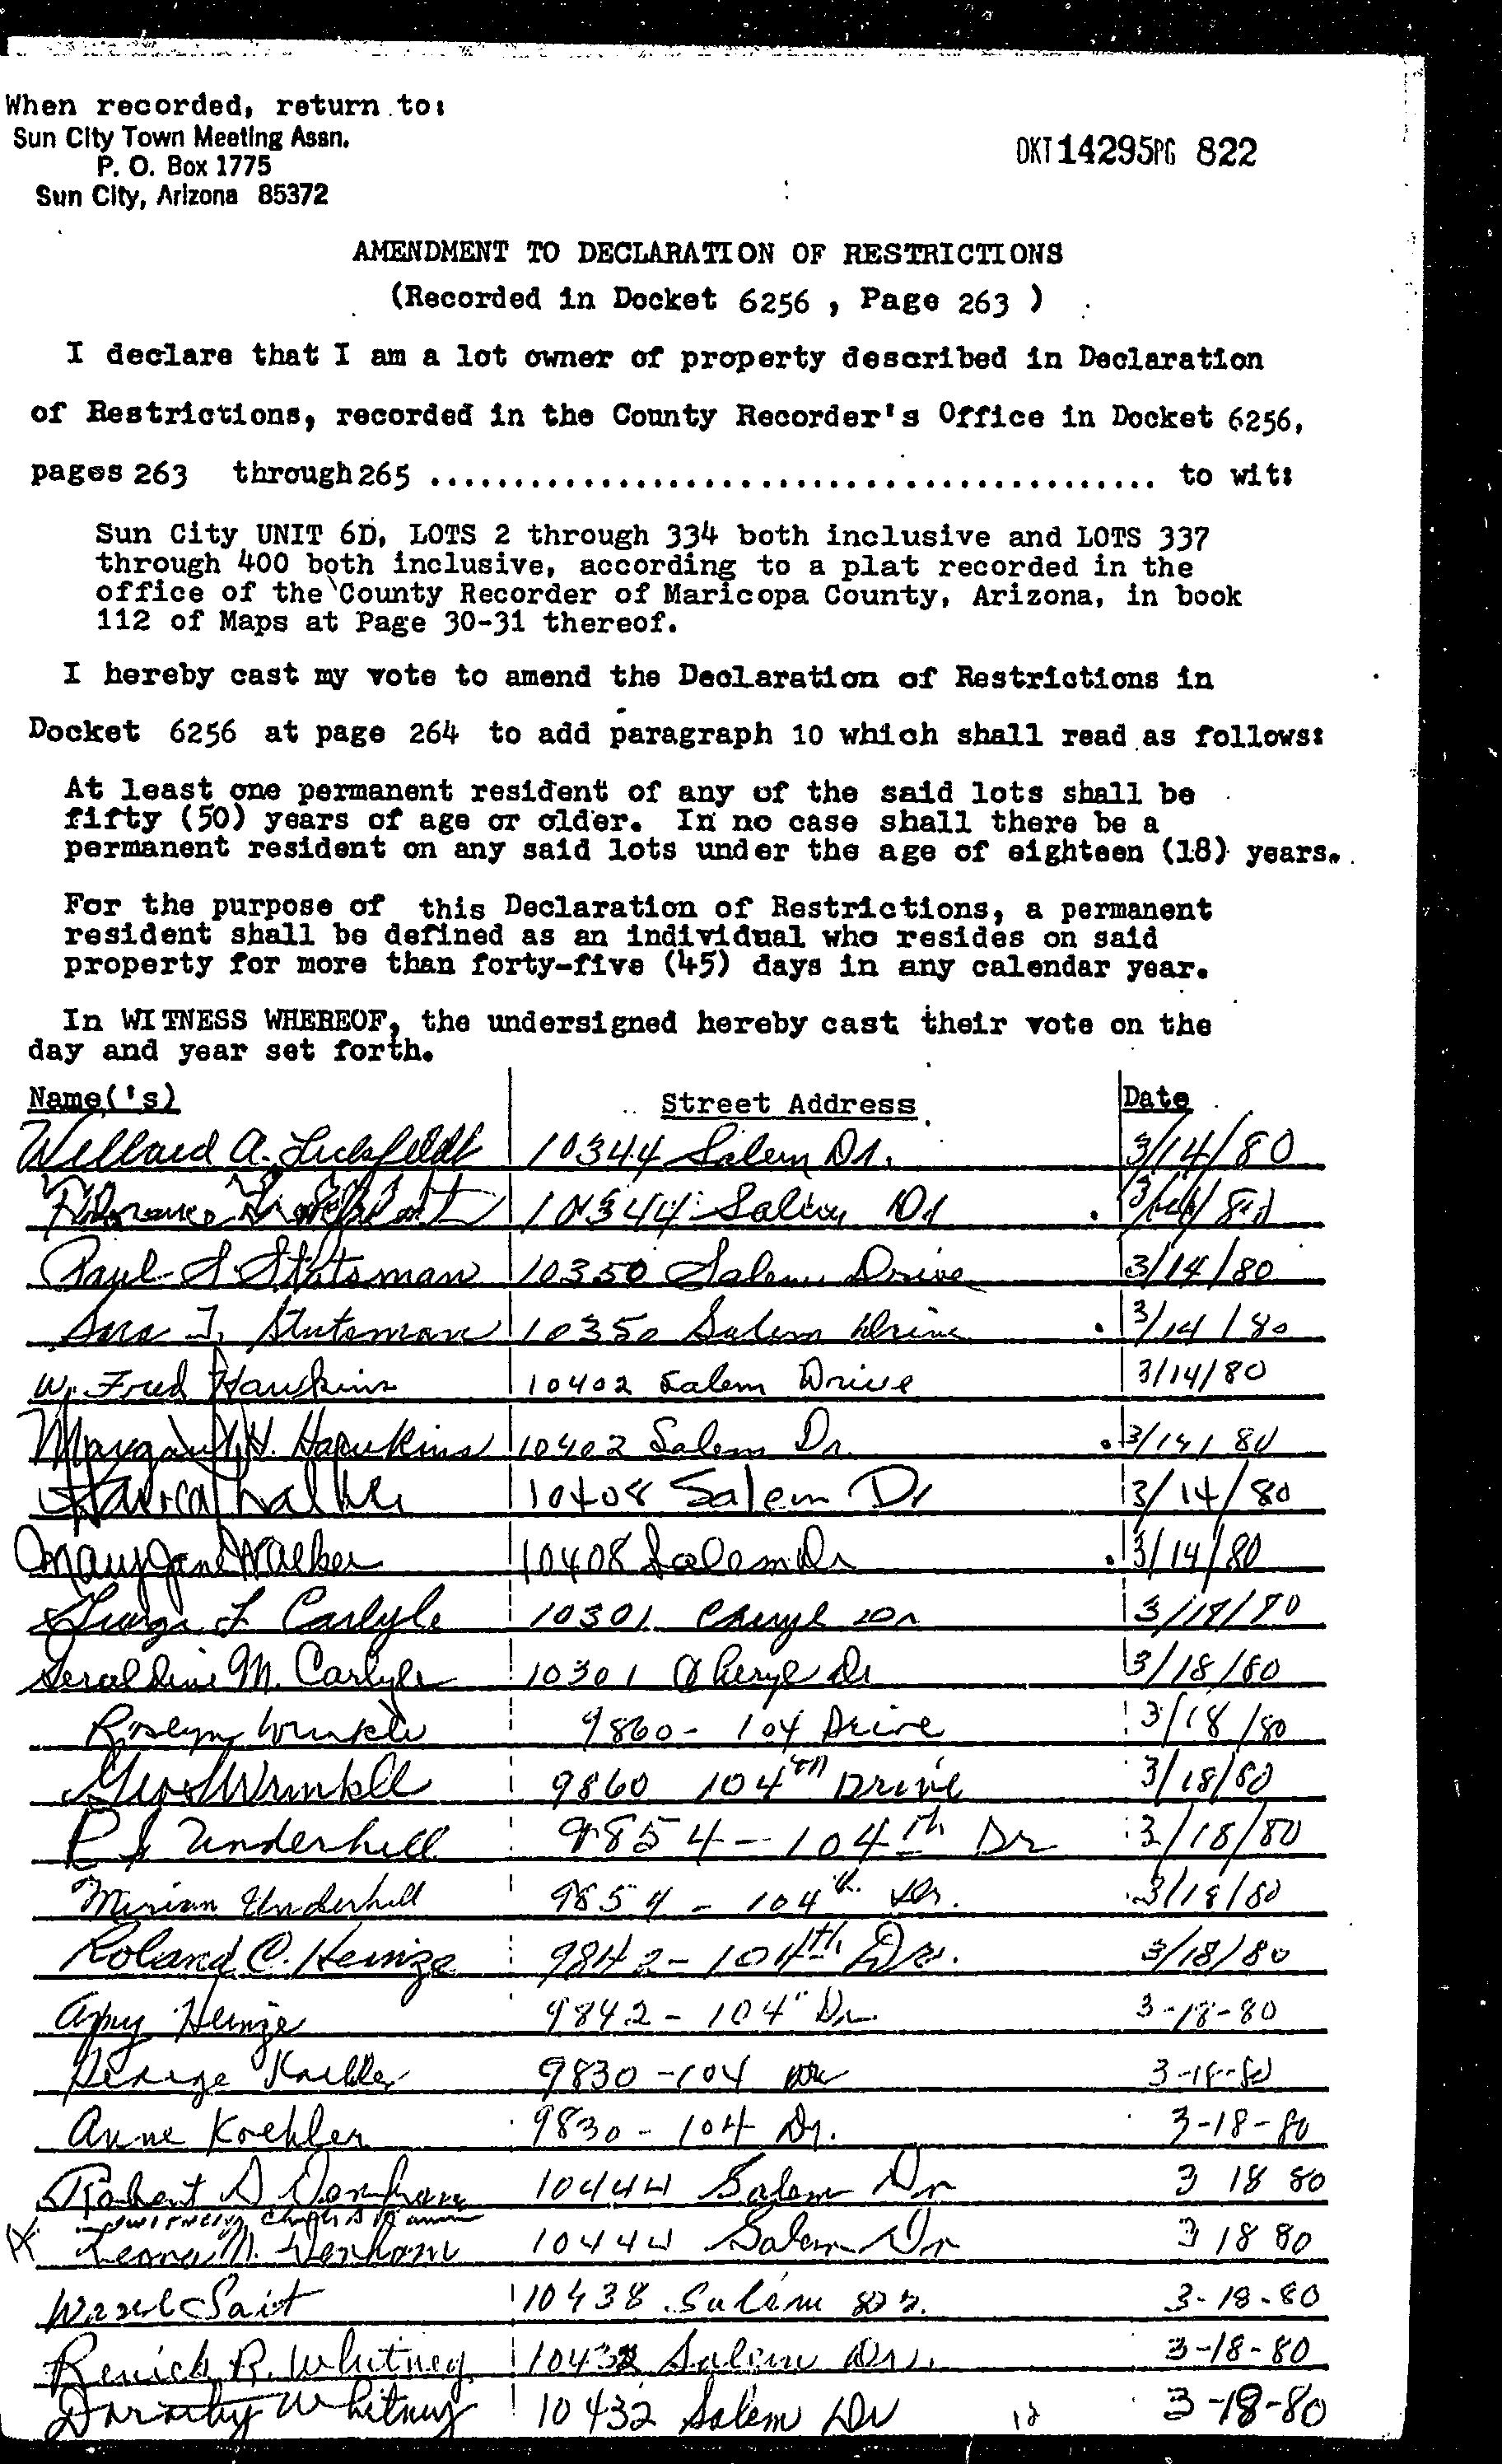 When recorded, return to:
Sun City Town Meeting Assn.
P. O. Box 1775
Sun City, Arizona 85372
DKT 14295 PG 822
AMENDMENT TO DECLARATION OF RESTRICTIONS
(Recorded in Docket 6256 , Page 263 )
I declare that I am a lot owner of property described in Declaration
of Restrictions, recorded in the County Recorder's Office in Docket 6256,
pages 263 through 265 .......................................... to wit:
Sun City UNIT 6D, LOTS 2 through 334 both inclusive and LOTS 337
through 400 both inclusive, according to a plat recorded in the
office of the County Recorder of Maricopa County, Arizona, in book
112 of Maps at Page 30-31 thereof.
I hereby cast my vote to amend the Declaration of Restrictions in
Docket 6256 at page 264 to add paragraph 10 which shall read as follows:
At least one permanent resident of any of the said lots shall be
fifty (50) years of age or older. In no case shall there be a
permanent resident on any said lots under the age of eighteen (18) years.
For the purpose of this Declaration of Restrictions, a permanent
resident shall be defined as an individual who resides on said
property for more than forty-five (45) days in any calendar year.
In WITNESS WHEREOF, the undersigned hereby cast their vote on the
day and year set forth.
Name('s) Street Address Date
Willard A. 10344 Salem Dr. 3/14/80
10344 Salem Dr
Paul S. Stutsman 10350 Salem Drive 3/14/80
Sara J. Stutsman 10350 Salem Drive 3/14/80
W. Fred Hawkins 10402 Salem Drive 3/14/80
Margaret H. Hawkins 10402 Salem Dr. 3/14/80
Walker 10408 Salem Dr 3/14/80
Mary Jane Walker 10408 Salem Dr 3/14/80
George F. Carlyle 10301 Cheryl Dr 3/18/80
Geraldine M. Carlyle 10301 Cheryl Dr 3/18/80
Roslyn Wrinkle 9860 - 104 Drive 3/18/80
Wrinkle 9860 104th Drive 3/18/80
R Underhill 9854 - 104th Dr 3/18/80
Miriam Underhill 9854 - 104th Dr. 3/18/80
Roland C. Heinze 9842 - 104th Dr. 3/18/80
Amy Heinze 9842 - 104" Dr. 3-18-80
George Koehler 9830 - 104 Dr 3-18-80
Anne Koehler 9830 - 104 Dr. 3-18-80
Robert D. Denham 10444 Salem Dr 3 18 80
Leona M. Denham 10444 Salem Dr 3 18 80
Sait 10438 Salem Dr. 3-18-80
Renick R. Whitney 10432 Salem Dr. 3-18-80
Dorothy Whitney 10432 Salem Dr 3-18-80
12